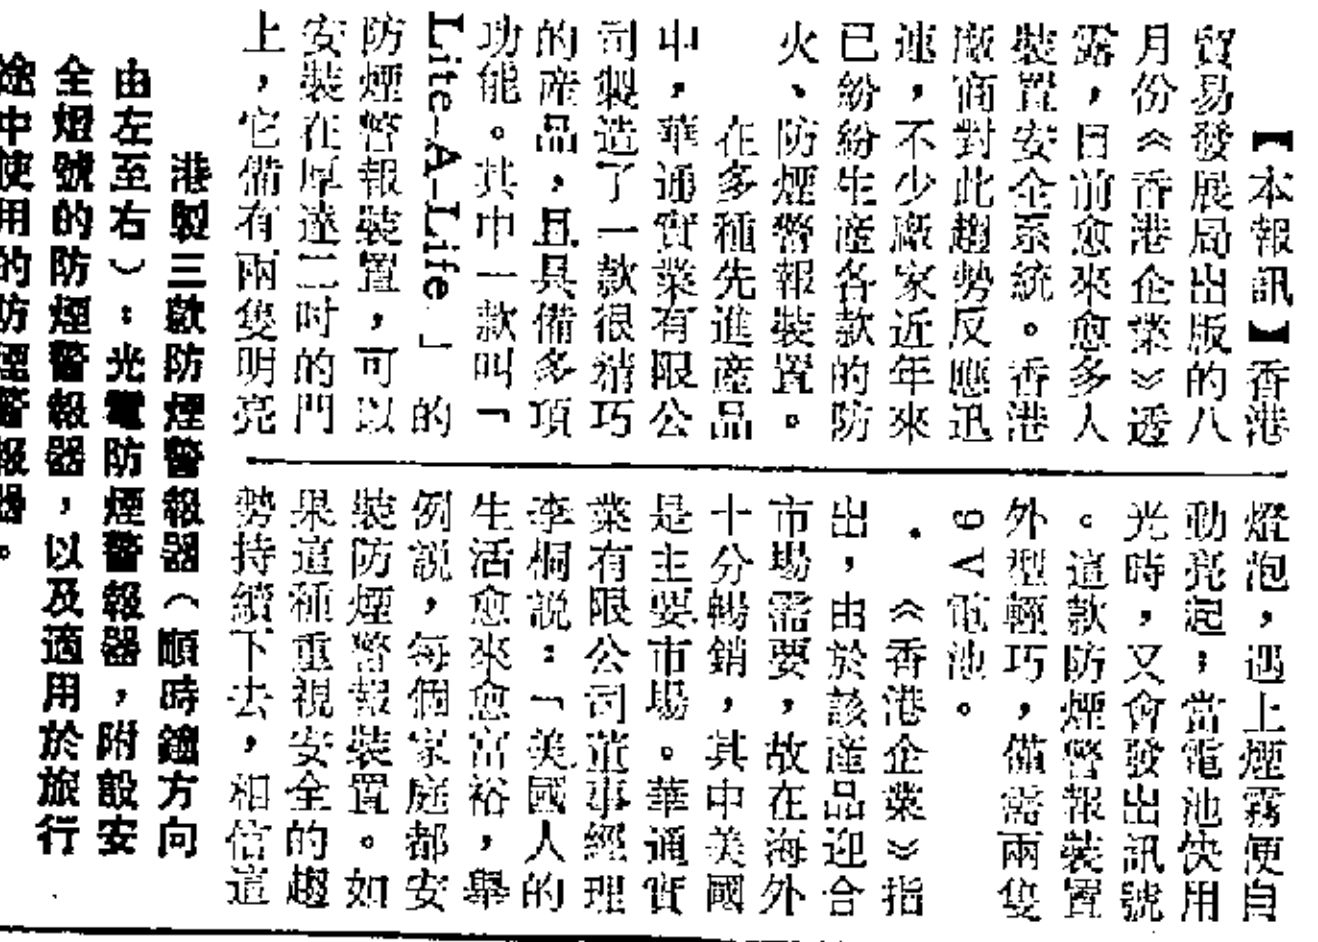 【本報訊】香港
貿易發展局出版的八
月份《香港企業》透
露，日前愈來愈多人
裝置安全系統。香港
廠商對此趨勢反應迅
速，不少廠家近年來
已紛紛生產各款的防
火、防煙警報裝置。
在多種先進產品
中，華通實業有限公
司製造了一款很精巧
的產品，且具備多項
功能。其中一款叫「
Lite-A-Life」的
防煙警報裝置，可以
安裝在厚達二吋的門
上，它備有兩隻明亮
燈泡，遇上煙霧便自
動亮起；當電池快用
光時，又會發出訊號
。這款防煙警報裝置
外型輕巧，備需兩隻
9V電池。
《香港企業》指
出，由於該產品迎合
市場需要，故在海外
十分暢銷，其中美國
是主要市場。華通實
業有限公司董事經理
李桐說：「美國人的
生活愈來愈富裕，舉
例說，每個家庭都安
裝防煙警報裝置。如
果這種重視安全的趨
勢持續下去，相信這
港製三款防煙警報器（順時鐘方向
由左至右）：光電防煙警報器，附設安
全燈號的防煙警報器，以及適用於旅行
途中使用的防煙警報器。